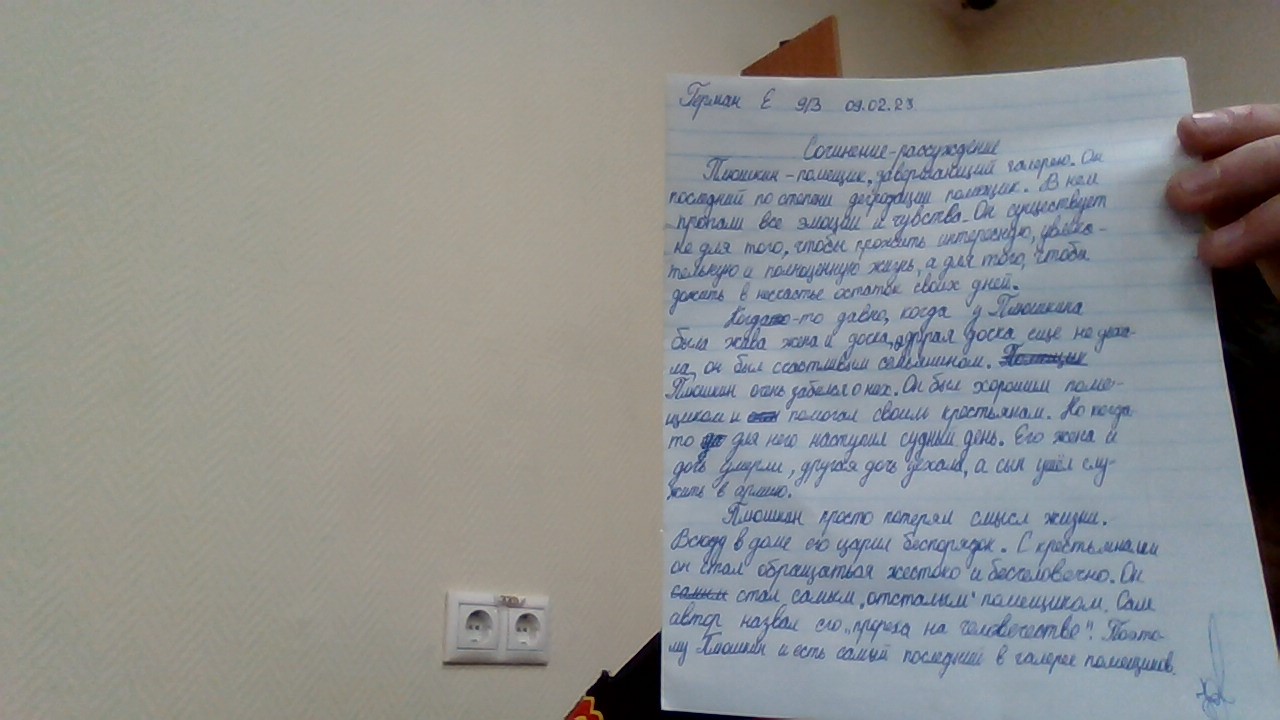 Герман Е 9/3 09.02.23
Сочинение-рассуждение
Плюшкин - помещик, завершающий галерею. Он
последний по степени деградации помещик. В нем
пропали все эмоции и чувства. Он существует
не для того, чтобы прожить интересную, увлека-
тельную и полноценную жизнь, а для того, чтобы
дожить в несчастье остаток своих дней.
Когда-то давно, когда у Плюшкина
была жива жена и дочка, другая дочка еще не уеха-
ла, он был счастливым семьянином.
Плюшкин очень заботился о них. Он был хорошим поме-
щиком и помогал своим крестьянам. Но когда
то для него наступил судный день. Его жена и
дочь умерли, другая дочь уехала, а сын ушёл слу-
жить в армию.
Плюшкин просто потерял смысл жизни.
Всюду в доме его царил беспорядок. С крестьянами
он стал обращаться жестоко и бесчеловечно. Он
стал самым „отсталым" помещиком. Сам
автор назвал его „прореха на человечестве"! Поэто-
му Плюшкин и есть самый последний в галерее помещиков.